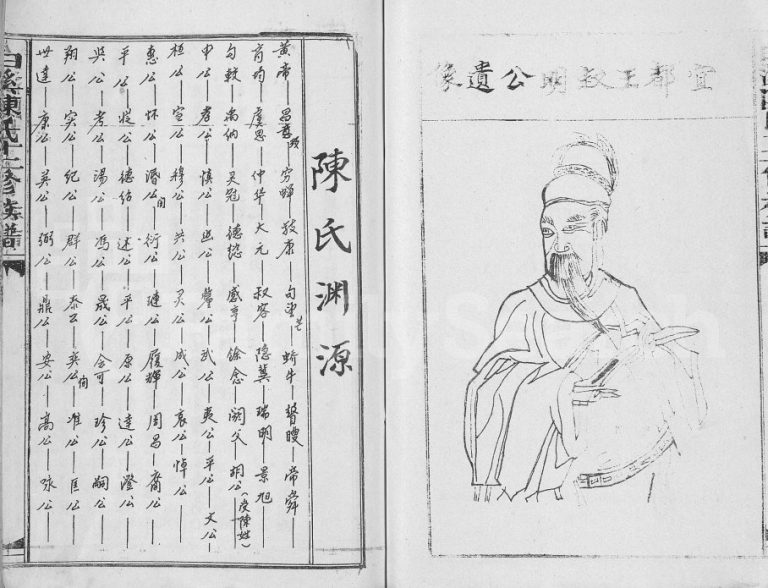 宜都王叔明公遺像
陳氏淵源
黃帝—昌意—窮蟬—敬康—句望芒—蚧牛—瞽瞍—帝舜—
商均—虞思—仲华—大元—叔容—隱冀—瑞明—景旭
句較—禹纳—昊冠—德懿—感亨—餘念—阏父—胡公(受陳姓)
申公—孝公—慎公—幽公—釐公—武公—夷公—平公—文公
桓公—宣公—穆公—共公—灵公—成公—哀公—悼公—
惠公—怀公—湣公—衍公—琏公—履輝—周昌—裔公—
平公—從公—德结—述公—平公—原公—達公—澄公—
吳公—孝公—湯公—馮公—晟公—全可—珍公—嗣公—
翔公—寔公—紀公—群公—泰公—英公—准公—匡公—
世達—康公—英公—弼公—鼎公—安公—高公—咏公—
白溪陳氏修族譜